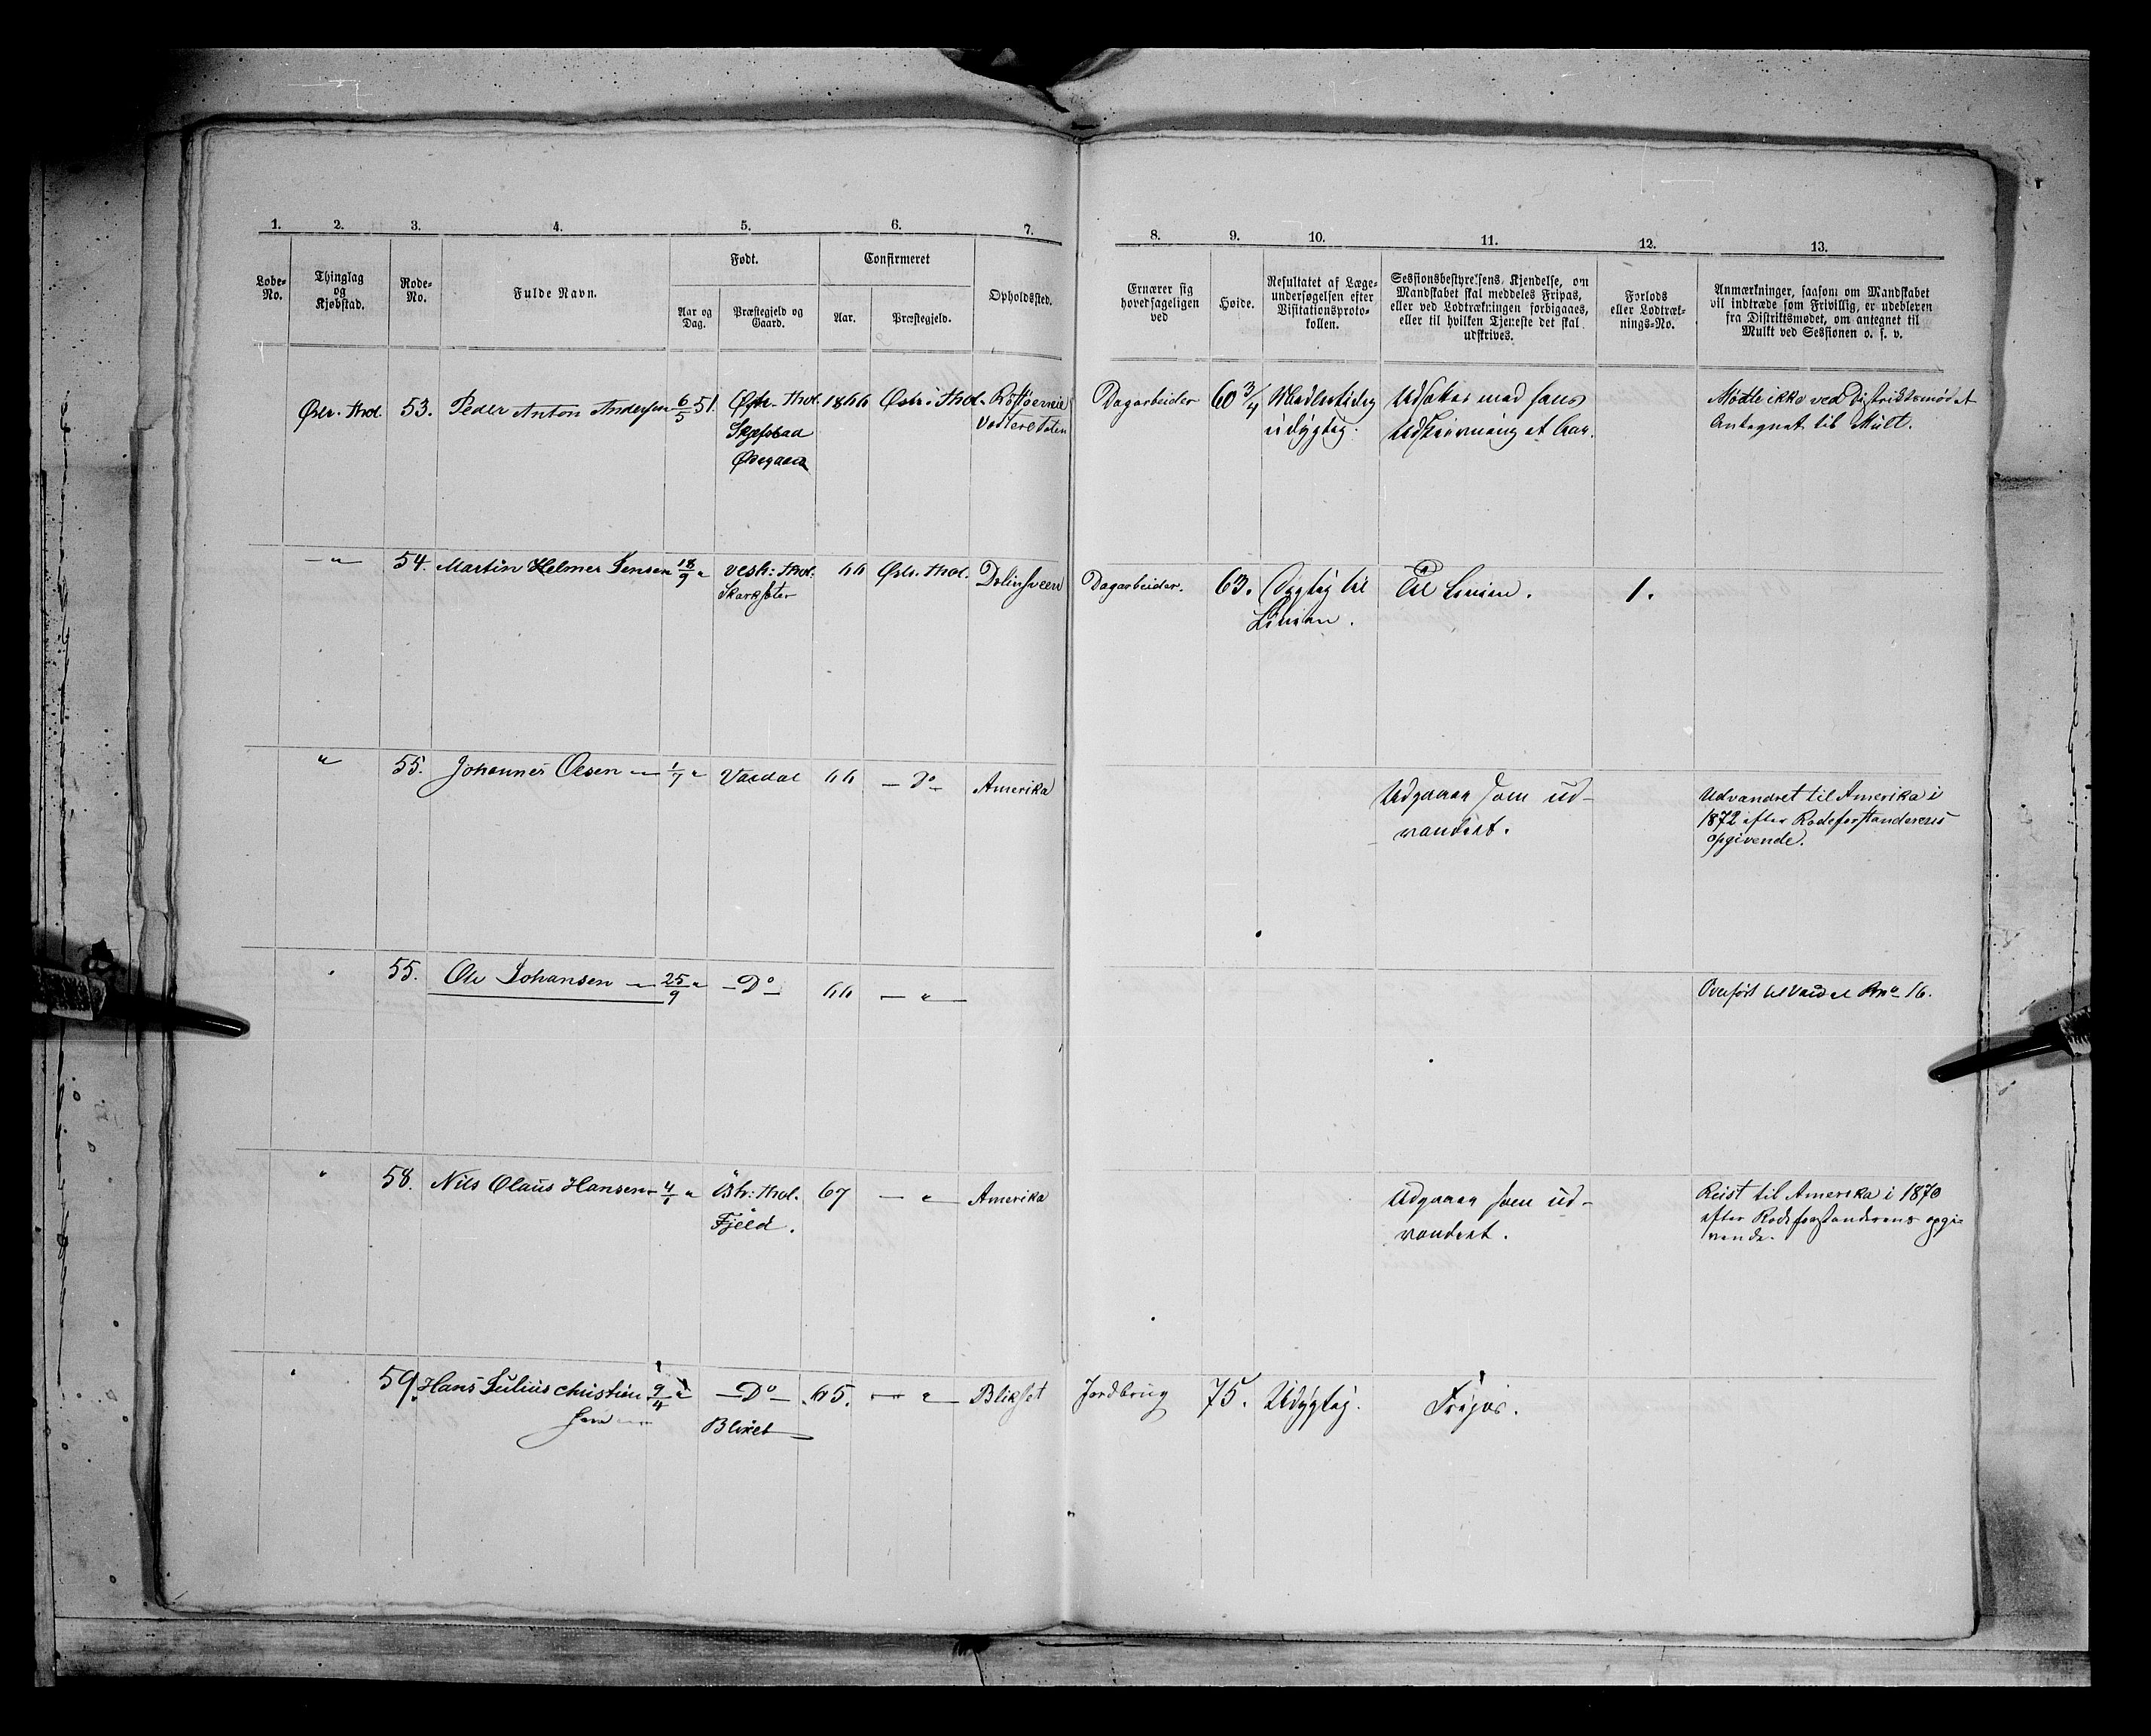 1. 2. 3. 4. 5. 6. 7. 8. 9. 10. 11. 12. 13.
Løbe-
No.
Thinglag
og
Kjøbstad.
Rode-
No.
Fulde Navn.
Født.
Aar og
Dag.
Præstegjeld og
Gaard.
Confirmeret
Aar.
Præstegjeld.
Opholdssted.
Ernærer sig
hovedsageligen
ved
Høide.
Resultatet af Læge-
undersøgelsen efter
Visitationsproto-
kollen.
Sessionsbestyrelsens Kjendelse, om
Mandskabet skal meddeles Fripas,
eller ved Lodtrækningen forbigaaes,
eller til hvilken Tjeneste det skal
udskrives.
Forlods
eller Lodtræk-
nings-No.
Anmærkninger, saasom om Mandskabet
vil indtræde som Frivillig, er udebleven
fra Distriktsmødet, om antegnet til
Mulkt ved Sessionen o. s. v.
Østr. Thol. 53. Peder Anton Andersen 6/5 51. Østr. Thol. 1866 Østr. Thol.
Ødegaard
Vestere Toten
Dagarbeider 60 3/4 Midlertidig
udygtig.
Udsættes med hans
Udskrivning et Aar.
Mødte ikke ved Distriktsmødet
Antegnet til Mult.
— " 54. Martin Helmer Jensen 18/9 " Vestr: Thol. 66 Østr. Thol. Dolinsveen
Dagarbeider. 63. Dygtig til
Linien.
Til Linien. 1.
" 55. Johannes Olsen — 1/7 " Vardal 66 — Do — Amerika
Udgaaer som ud-
vandret.
Udvandret til Amerika i
1872 efter Rodeforstanderens
opgivende.
" 55. Ole Johansen — 25/9 " — Do — 66 — " —
Overført til Vardal Rno 16.
" 58. Nils Olaus Hansen 4/1 " Østr: Thol. 67 — " — Amerika
Fjeld.
Udgaaer som ud-
vandret.
Reist til Amerika i 1870
efter Rodeforstanderens opgi-
vende.
" 59. Hans Julius Christian 9/4 " — Do — 65. — " — Blikset
sen
Jordbrug 75. Udygtig. Fripas.